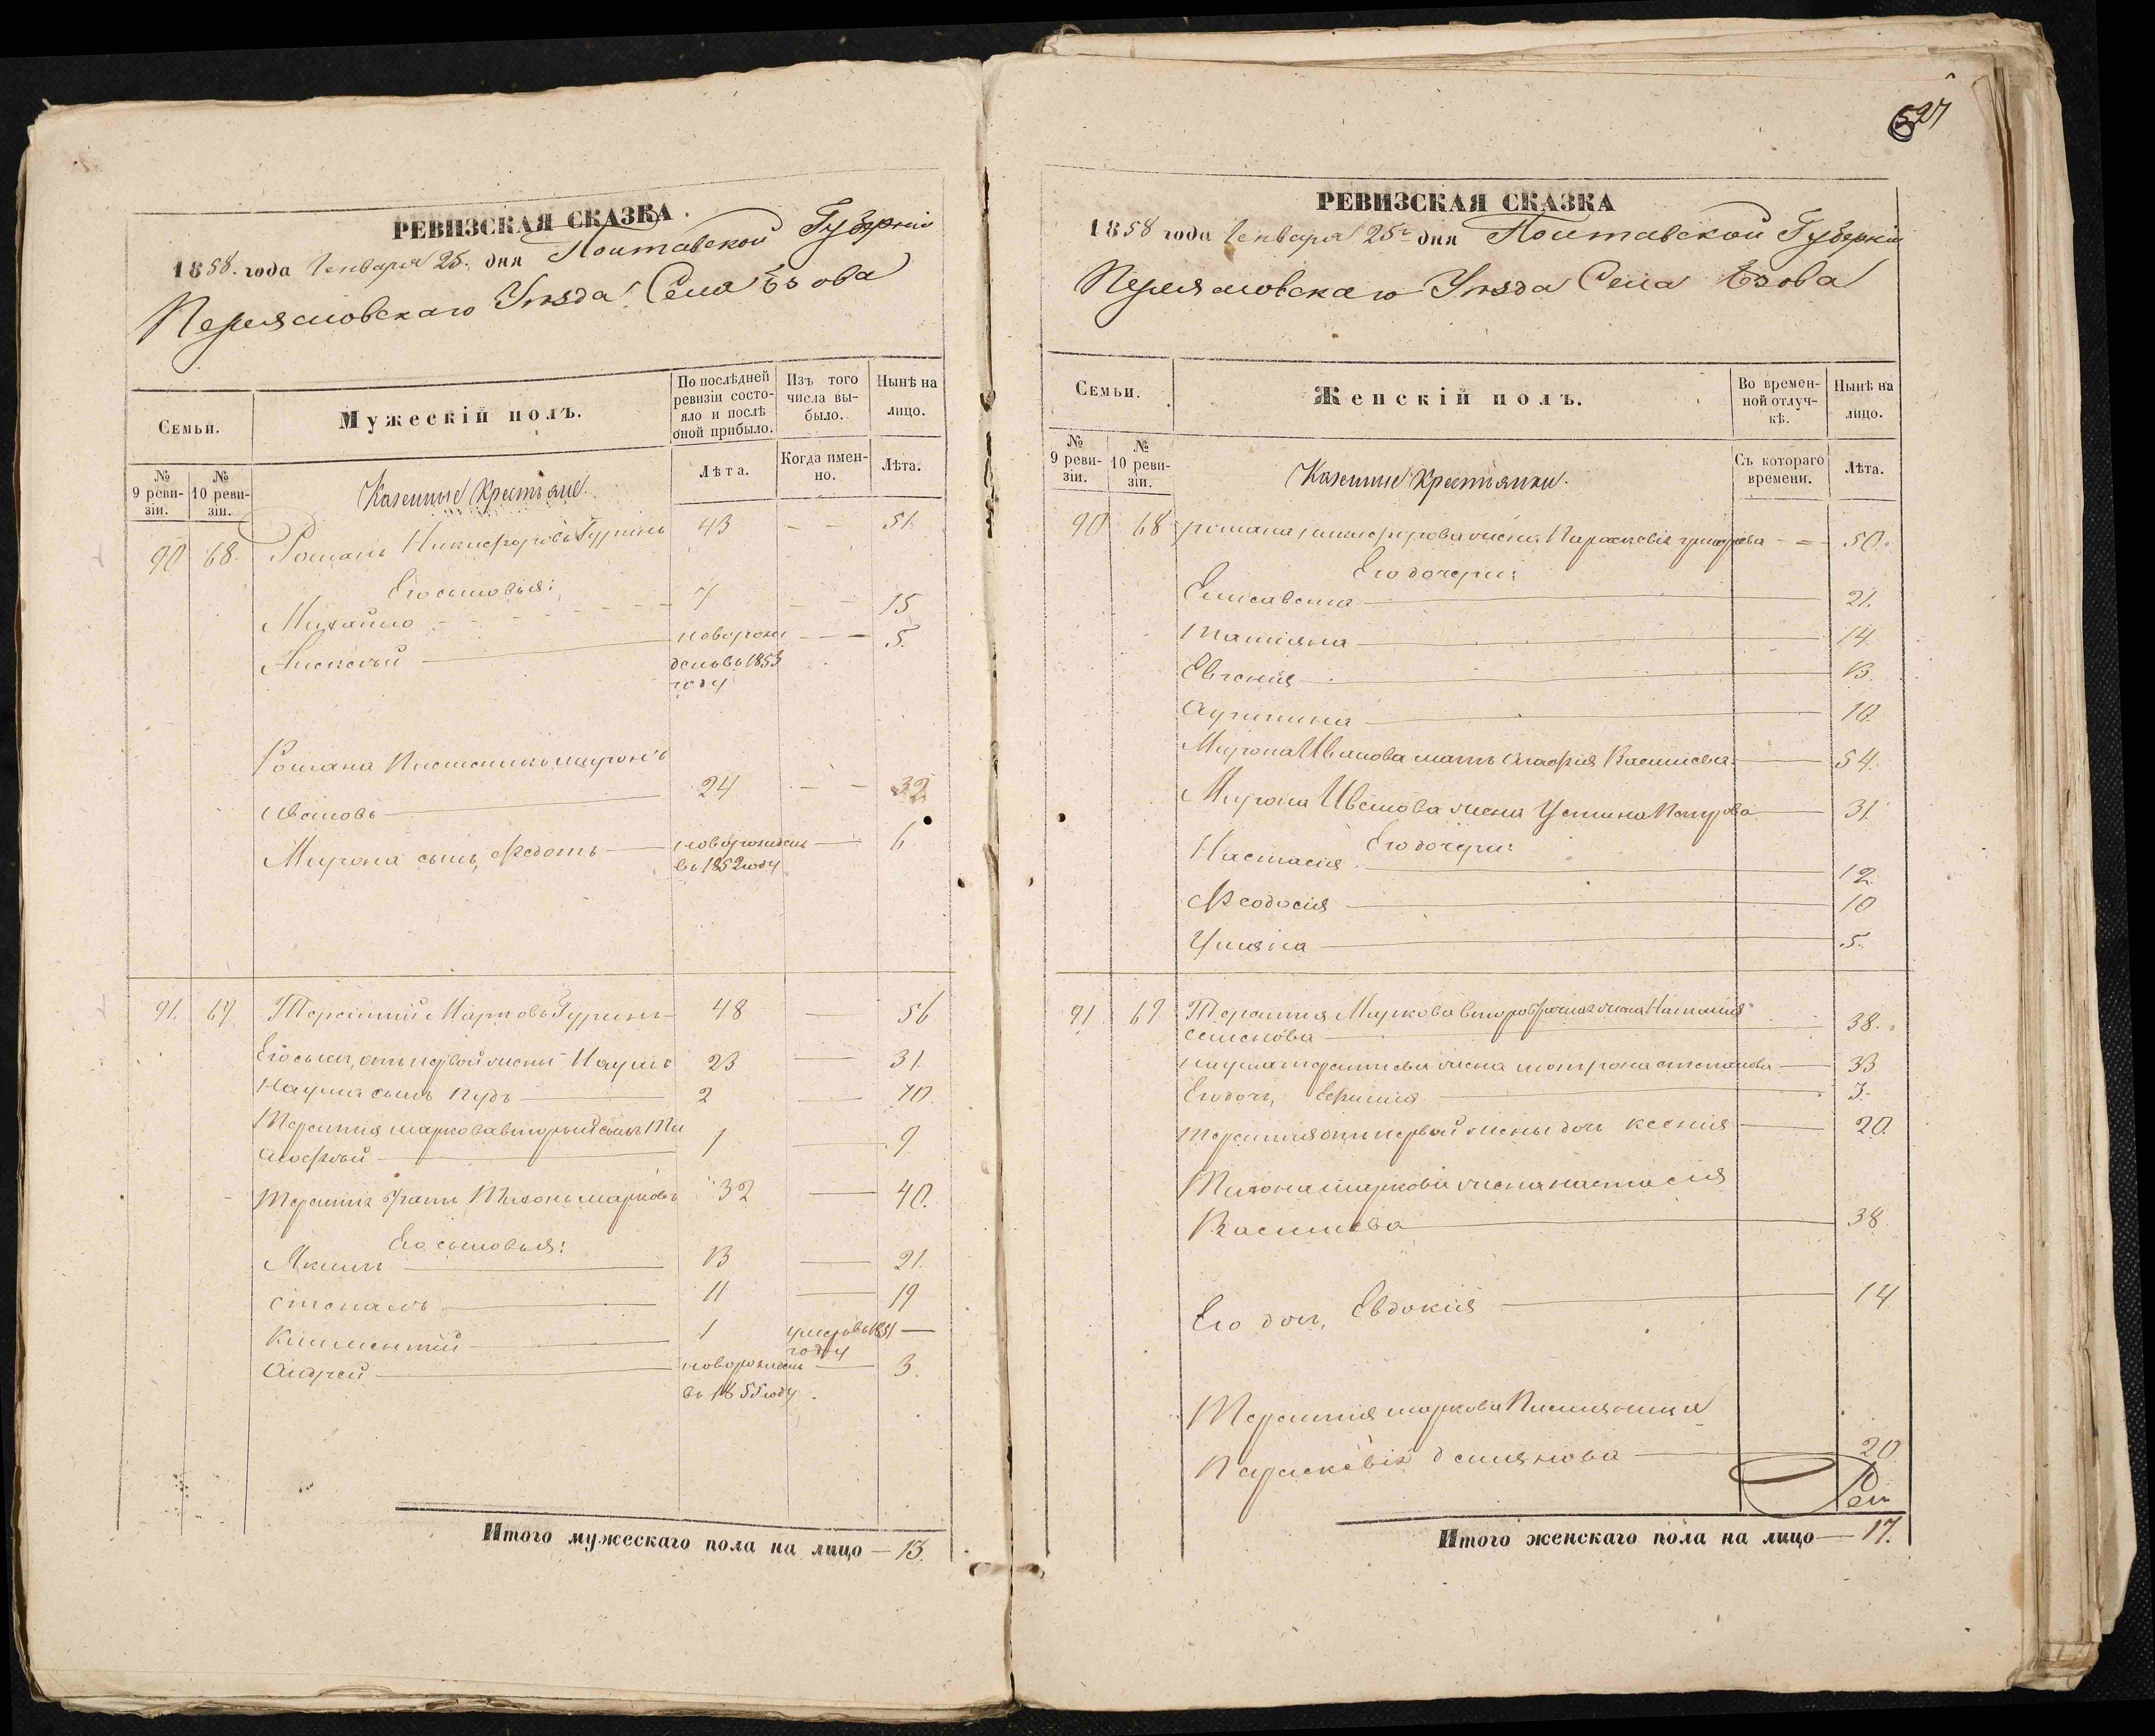 РЕВИЗСКАЯ СКАЗКА.
1858. года Генваря 25. дня Полтавской Губерніи
Переясловскаго Уѣзда Села Ѣзова
Семьи.
Мужескій полъ.
По послѣдней ревизіи состояло и послѣ оной прибыло.
Изъ того числа выбыло.
Нынѣ на лицо.
№ 9 ревизіи.
№ 10 ревизіи.
Казенные Крестьяне.
Лѣта.
Когда именно.
Лѣта.
90 68. Романъ Никифоровъ Гуринъ 43 - - 51.
Его сыновья:
Михайло - - - - 7 - - 15
Алексѣй — новорож - - - 5.
денъ въ 1853
году
Романа Миронъ
Ивановъ — 24 - - 32
Мирона сынъ, Федотъ — новорожденъ — 6
въ 1852 году
91. 69 Терентій Марковъ Гуринъ 48 — 56
Его сынъ, отъ первой жены Наумъ 23 — 31.
Наума сынъ Пудъ — 2 — 10.
Терентія Маркова вторый сынъ Ти
мофѣй — 1 — 9.
Терентія братъ Тихонъ Марковъ 32 — 40.
Его сыновья:
Якимъ — 13 — 21.
Степанъ — 11 — 19
Климентій — 1 умеръ въ 1851 —
году
Андрей — новорожденъ — 3.
въ 1855 году.
Итого мужескаго пола на лицо — 13.
527
РЕВИЗСКАЯ СКАЗКА
1858 года Генваря 25г дня Полтавской Губерніи
Переясловскаго Уѣзда Села Ѣзова
Семьи.
Женскій полъ.
Во временной отлучкѣ.
Нынѣ на лицо.
№ 9 ревизіи.
№ 10 ревизіи.
Казенные Крестьянки.
Съ котораго времени.
Лѣта.
90 68 Романа Никифорова жена Параскевія Григорьева - = - 50.
Его дочери:
Елисавета — 21.
Татіяна — 14.
Евгенія — 13.
Агрипина — 10.
Мирона Иванова мать Агафія Василева — 54.
Мирона Иванова жена Устина Петрова — 31.
Его дочери:
Настасія — 12.
Феодосія — 10
Уліяна — 5.
91 69 Терентія Маркова второбрачная жена Наталія
Семенова — 38.
Наума Терентіева жена Мотрона Степанова — 33
Его дочь, Ефимія — 3.
Терентія отъ первой жены дочь Ксенія — 20.
Тихона Маркова жена Настасія
Василева — 38.
Его дочь, Евдокія — 14
Терентія Маркова
Параскевія Демянова — 20
Итого женскаго пола на лицо — 17.